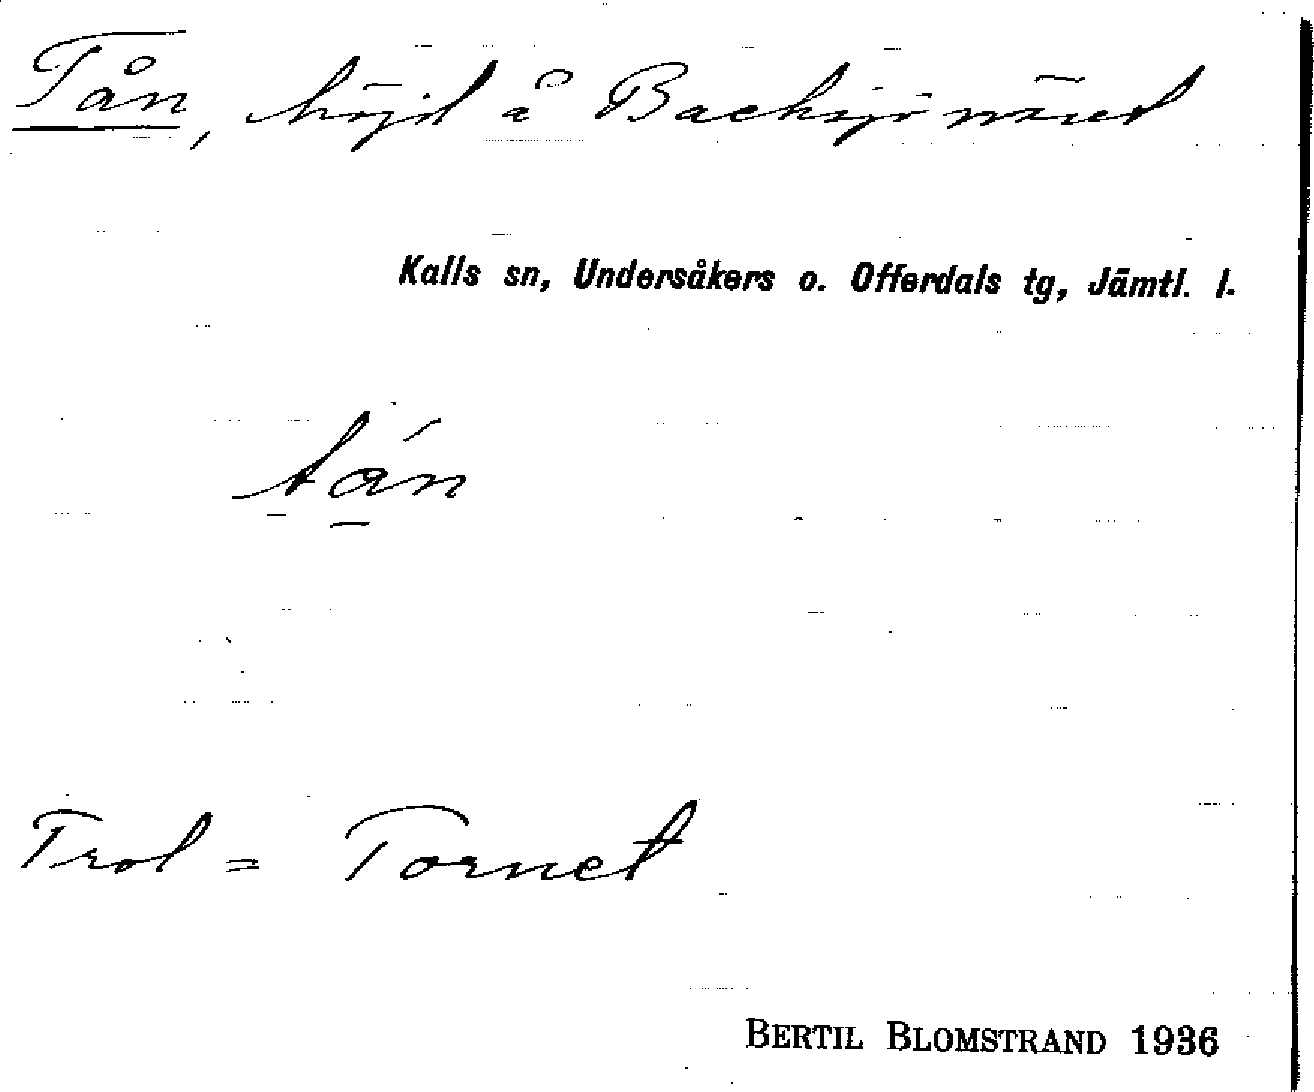 Tån, höjd å Backsjönäset
Kalls sn, Undersåkers o. Offerdals tg, Jämtl. l.
tán
Trol = Tornet
BERTIL BLOMSTRAND 1936